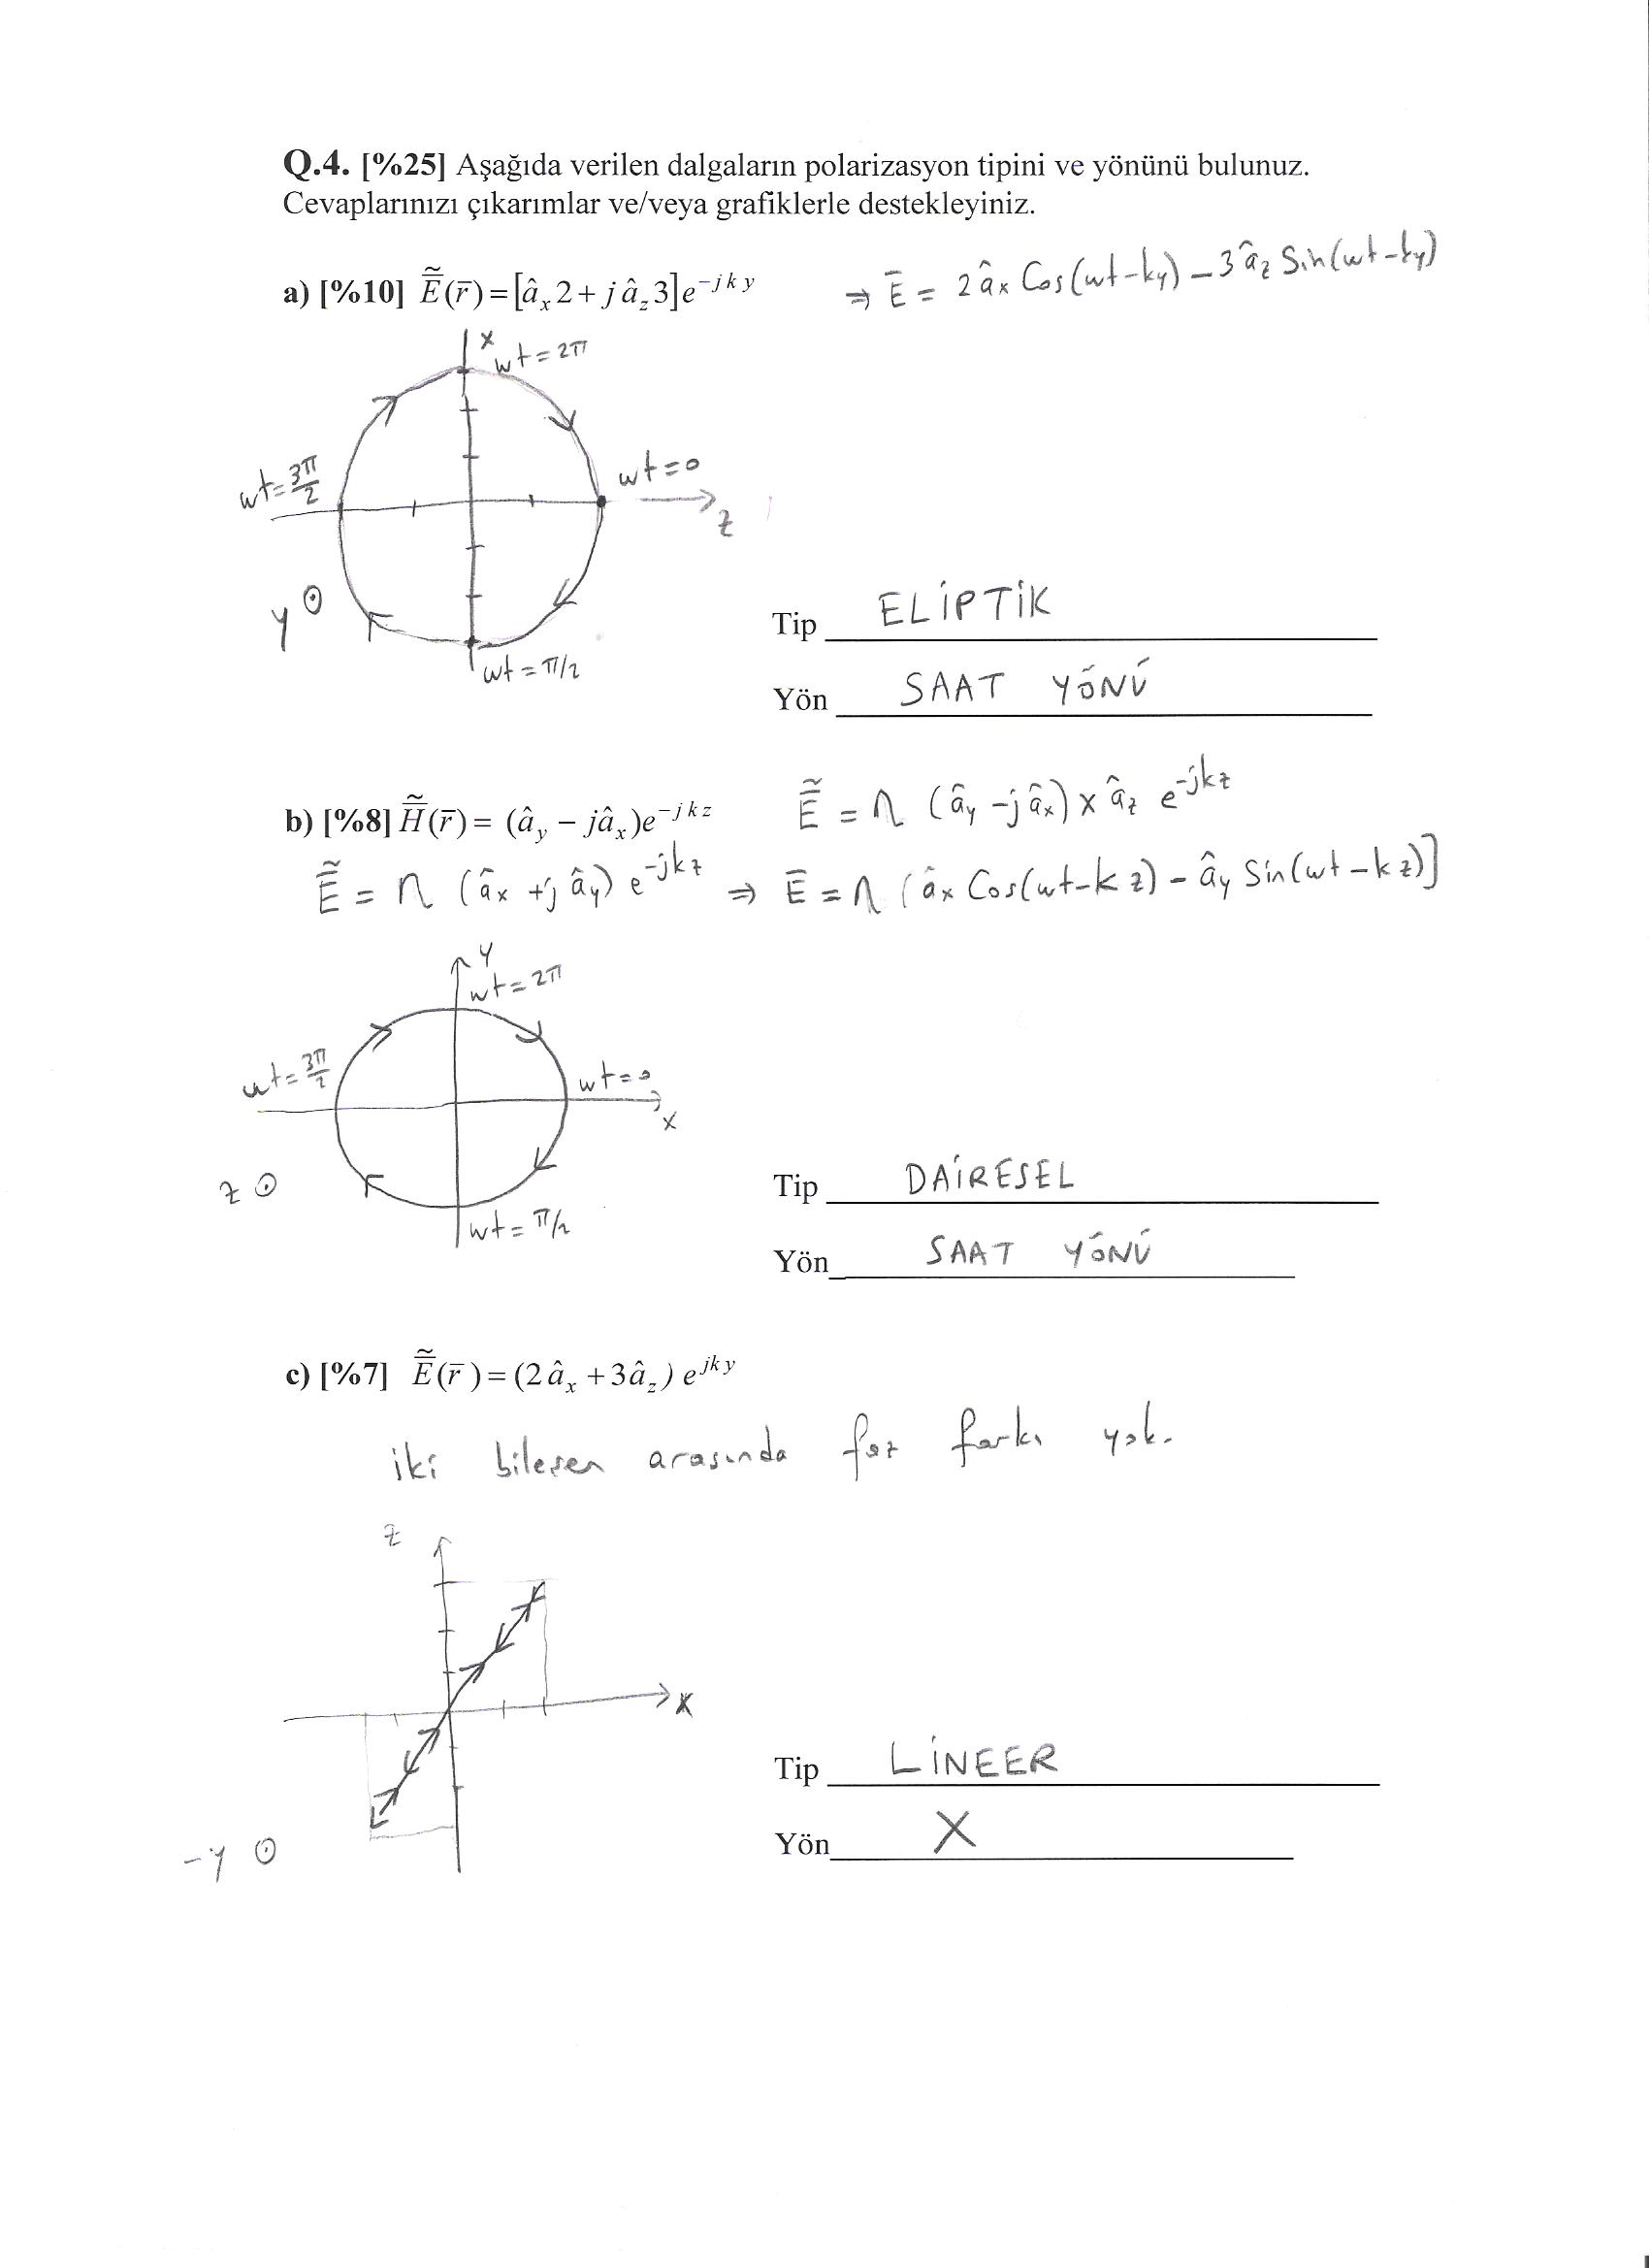 Q.4. [%25] Aşağıda verilen dalgaların polarizasyon tipini ve yönünü bulunuz.
Cevaplarınızı çıkarımlar ve/veya grafiklerle destekleyiniz.
a) [%10] Ẽ(r̄)=[â_x 2+ j â_z 3]e^{-jky} ⇒ Ē = 2 â_x Cos(wt-ky) - 3 â_z Sin(wt-ky)
x
wt = 2π
wt = 3π/2
wt = 0
z
y ⊙
wt = π/2
Tip ELİPTİK
Yön SAAT YÖNÜ
b) [%8] H̃(r̄)= (â_y - jâ_x)e^{-jkz} Ẽ = η (â_y - j â_x) x â_z e^{-jkz}
Ẽ = η (â_x + j â_y) e^{-jkz} ⇒ Ē = η ( â_x Cos(wt-kz) - â_y Sin(wt-kz)]
y
wt = 2π
wt = 3π/2
wt = 0
x
z ⊙
wt = π/2
Tip DAİRESEL
Yön SAAT YÖNÜ
c) [%7] Ẽ(r̄)= (2 â_x +3 â_z) e^{jky}
iki bileşen arasında faz farkı yok.
z
x
-y ⊙
Tip LİNEER
Yön X